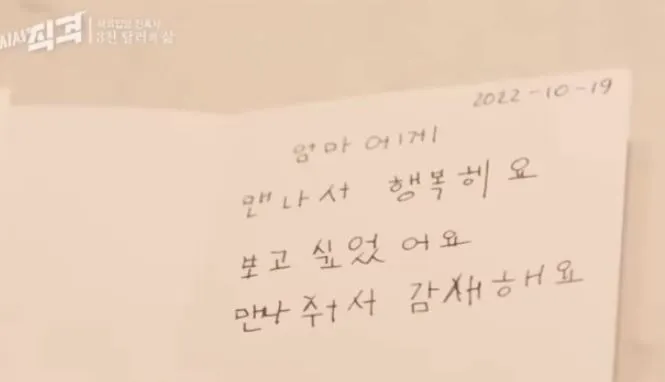 시사직격
3천 달러의 삶
2022-10-19
엄마에게
맨나서 행복헤요
보고 싶었어요
만나 주서 감재해요